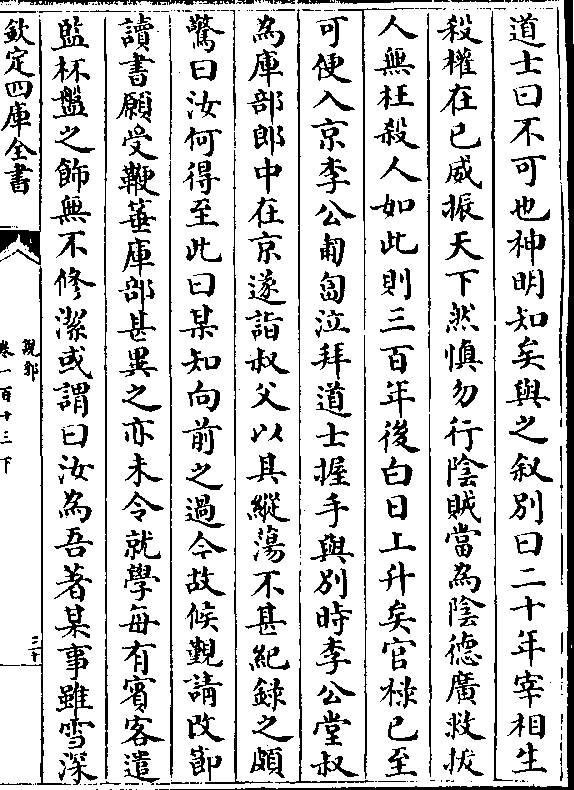 道士曰不可也神明知矣與之叙別曰二十年宰相生
殺權在已威振天下然慎勿行陰賊當為陰德廣救拔
人無枉殺人如此則三百年後白日上升矣官祿已至
可便入京李公匍匐泣拜道士握手與別時李公堂叔
為庫部郎中在京遂詣叔父以其縱蕩不甚紀錄之頗
驚曰汝何得至此曰某知向前之過今故候覲請改節
讀書願受鞭箠庫部甚異之亦未令就學每有賓客遣
監杯盤之飾無不修潔或謂曰汝為吾著某事雖雪深
欽定四庫全書
說郛
卷一百十三下
三十